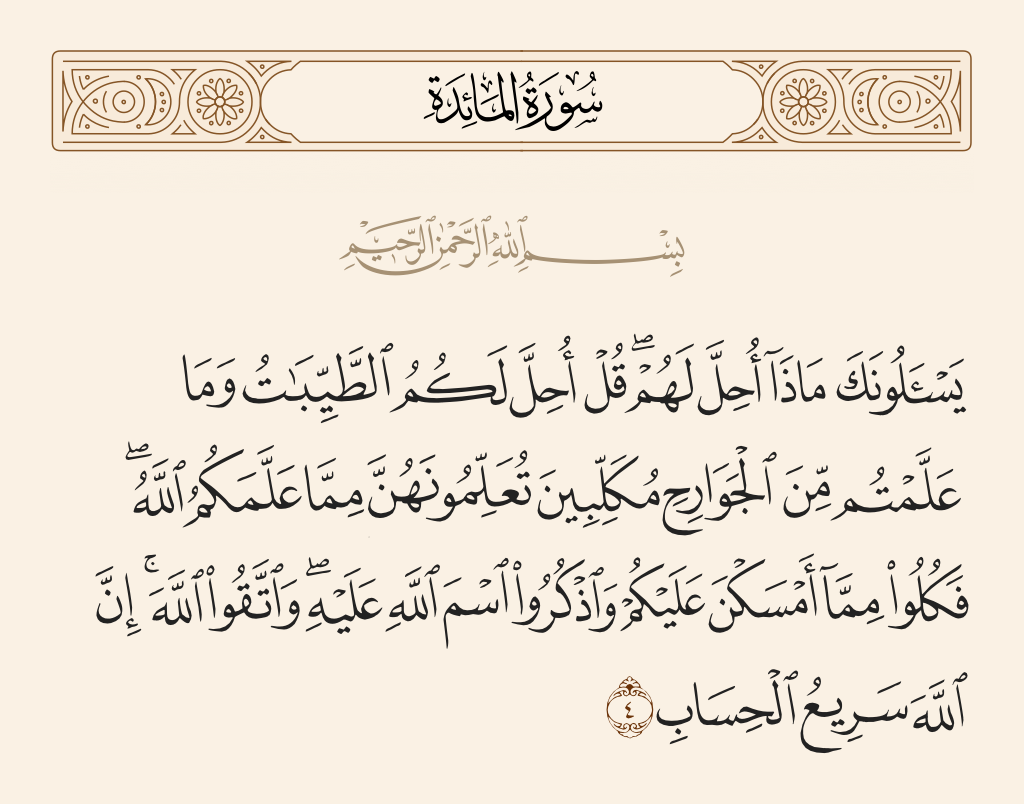 سُورَةُ المَائِدَةِ
بِسْمِ ٱللَّهِ ٱلرَّحْمَٰنِ ٱلرَّحِيمِ
يَسْـَٔلُونَكَ مَاذَآ أُحِلَّ لَهُمْ ۖ قُلْ أُحِلَّ لَكُمُ ٱلطَّيِّبَـٰتُ وَمَا
عَلَّمْتُم مِّنَ ٱلْجَوَارِحِ مُكَلِّبِينَ تُعَلِّمُونَهُنَّ مِمَّا عَلَّمَكُمُ ٱللَّهُ ۖ
فَكُلُوا۟ مِمَّآ أَمْسَكْنَ عَلَيْكُمْ وَٱذْكُرُوا۟ ٱسْمَ ٱللَّهِ عَلَيْهِ ۖ وَٱتَّقُوا۟ ٱللَّهَ ۚ إِنَّ
ٱللَّهَ سَرِيعُ ٱلْحِسَابِ ٤